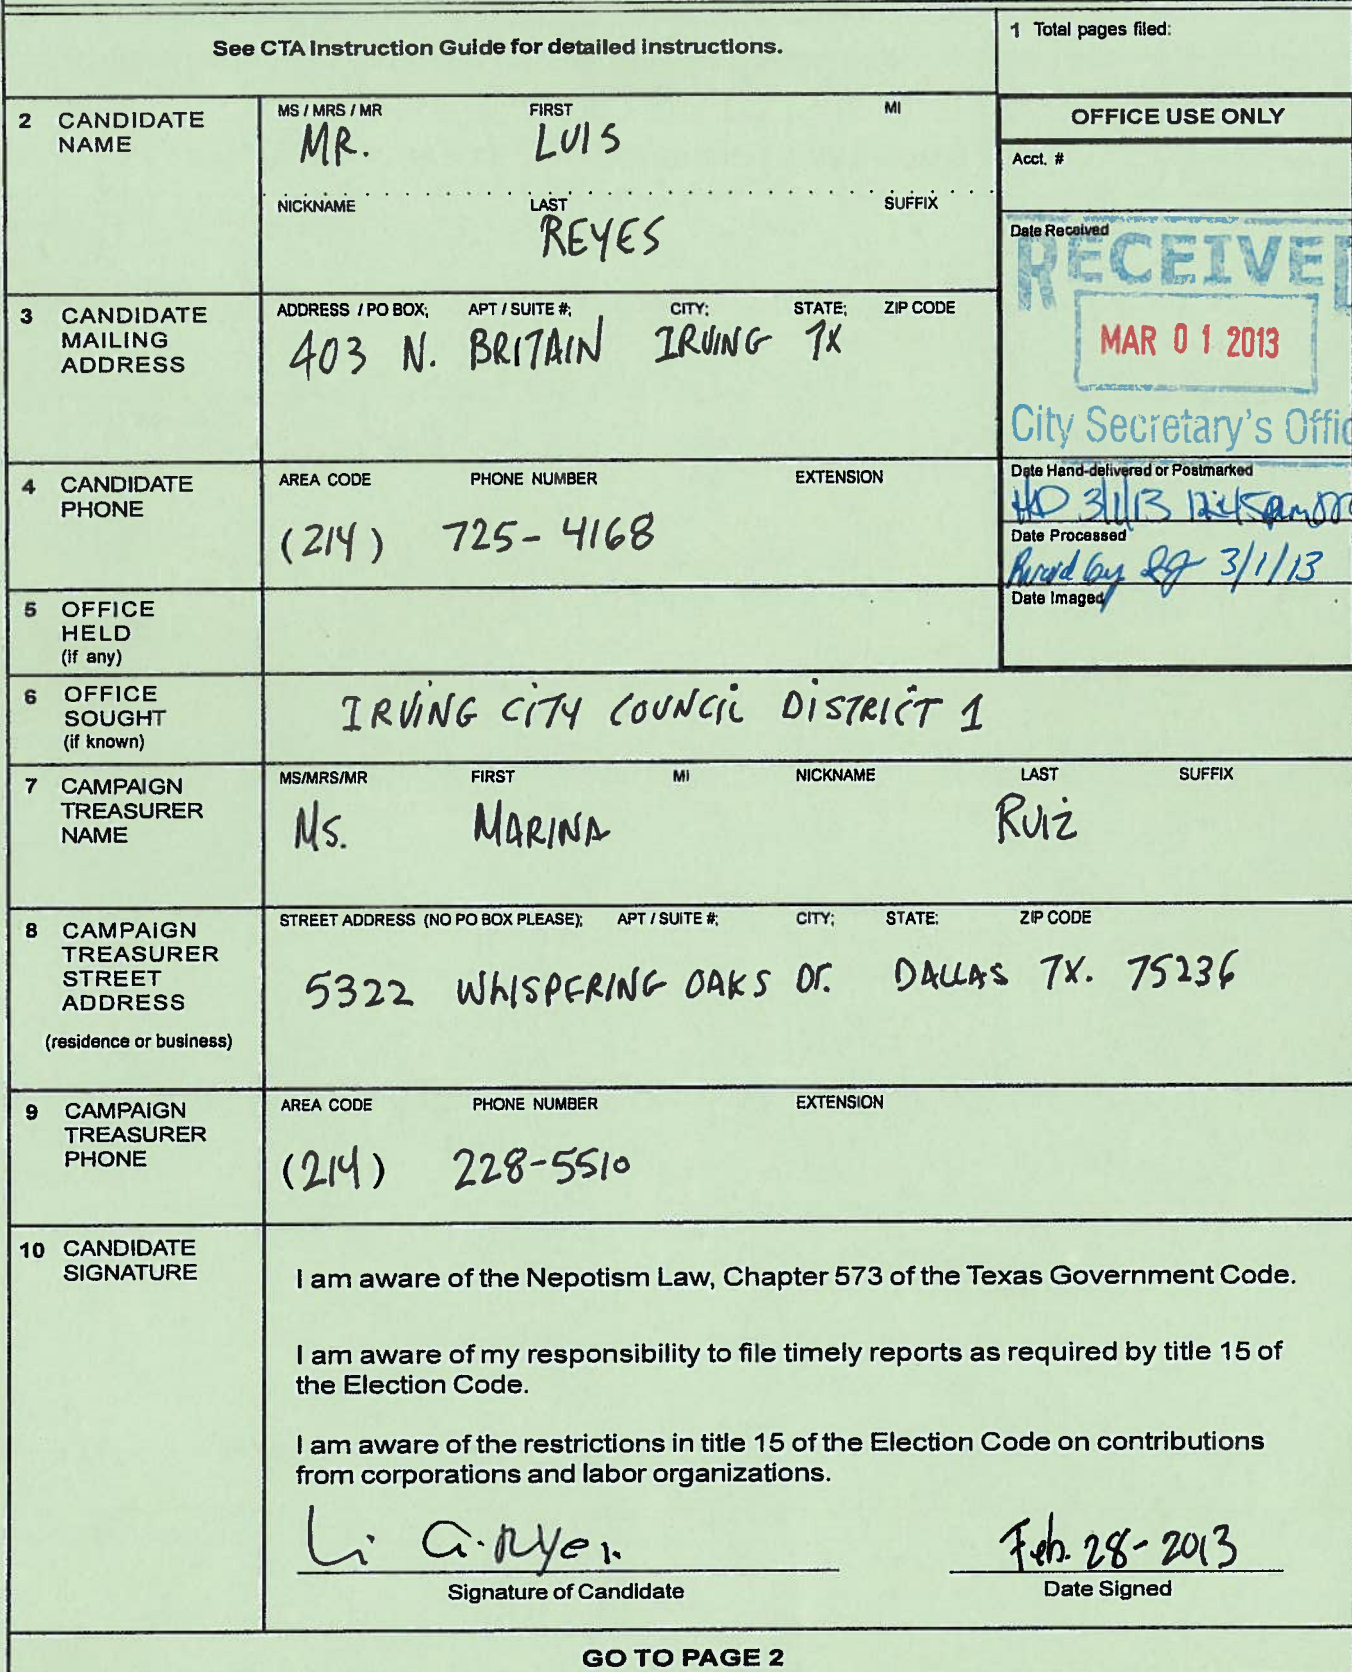 See CTA Instruction Guide for detailed instructions.
1 Total pages filed:
2 CANDIDATE NAME
MS / MRS / MR FIRST MI
MR. LUIS
NICKNAME LAST SUFFIX
REYES
OFFICE USE ONLY
Acct. #
Date Received
RECEIVED
MAR 01 2013
City Secretary's Offic
3 CANDIDATE MAILING ADDRESS
ADDRESS / PO BOX; APT / SUITE #; CITY; STATE; ZIP CODE
403 N. BRITAIN IRVING TX
4 CANDIDATE PHONE
AREA CODE PHONE NUMBER EXTENSION
(214) 725-4168
Date Hand-delivered or Postmarked
HD 3/1/13 12:45pm
Date Processed
3/1/13
Date Imaged
5 OFFICE HELD (if any)
6 OFFICE SOUGHT (if known)
IRVING CITY COUNCIL DISTRICT 1
7 CAMPAIGN TREASURER NAME
MS/MRS/MR FIRST MI NICKNAME LAST SUFFIX
Ms. MARINA Ruiz
8 CAMPAIGN TREASURER STREET ADDRESS
(residence or business)
STREET ADDRESS (NO PO BOX PLEASE); APT / SUITE #; CITY; STATE; ZIP CODE
5322 WHISPERING OAKS Dr. DALLAS TX. 75236
9 CAMPAIGN TREASURER PHONE
AREA CODE PHONE NUMBER EXTENSION
(214) 228-5510
10 CANDIDATE SIGNATURE
I am aware of the Nepotism Law, Chapter 573 of the Texas Government Code.
I am aware of my responsibility to file timely reports as required by title 15 of
the Election Code.
I am aware of the restrictions in title 15 of the Election Code on contributions
from corporations and labor organizations.
Feb. 28-2013
Signature of Candidate Date Signed
GO TO PAGE 2